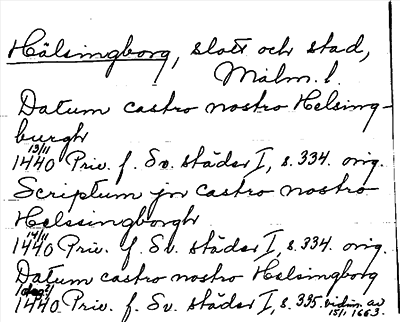 Hälsingborg, slott och stad,
Malm. l.
Datum castro nostro Helsing-
burgh
13/11
1440 Priv. f. Sv. städer I, s. 334. orig.
Scriptum jn castro nostro
Helssingborgh
14/11
1440 Priv. f. Sv. städer I, s. 334. orig.
Datum castro nostro Helsingborg
1440 Priv. f. Sv. städer I, s. 335. vidim. av
15/1 1663.